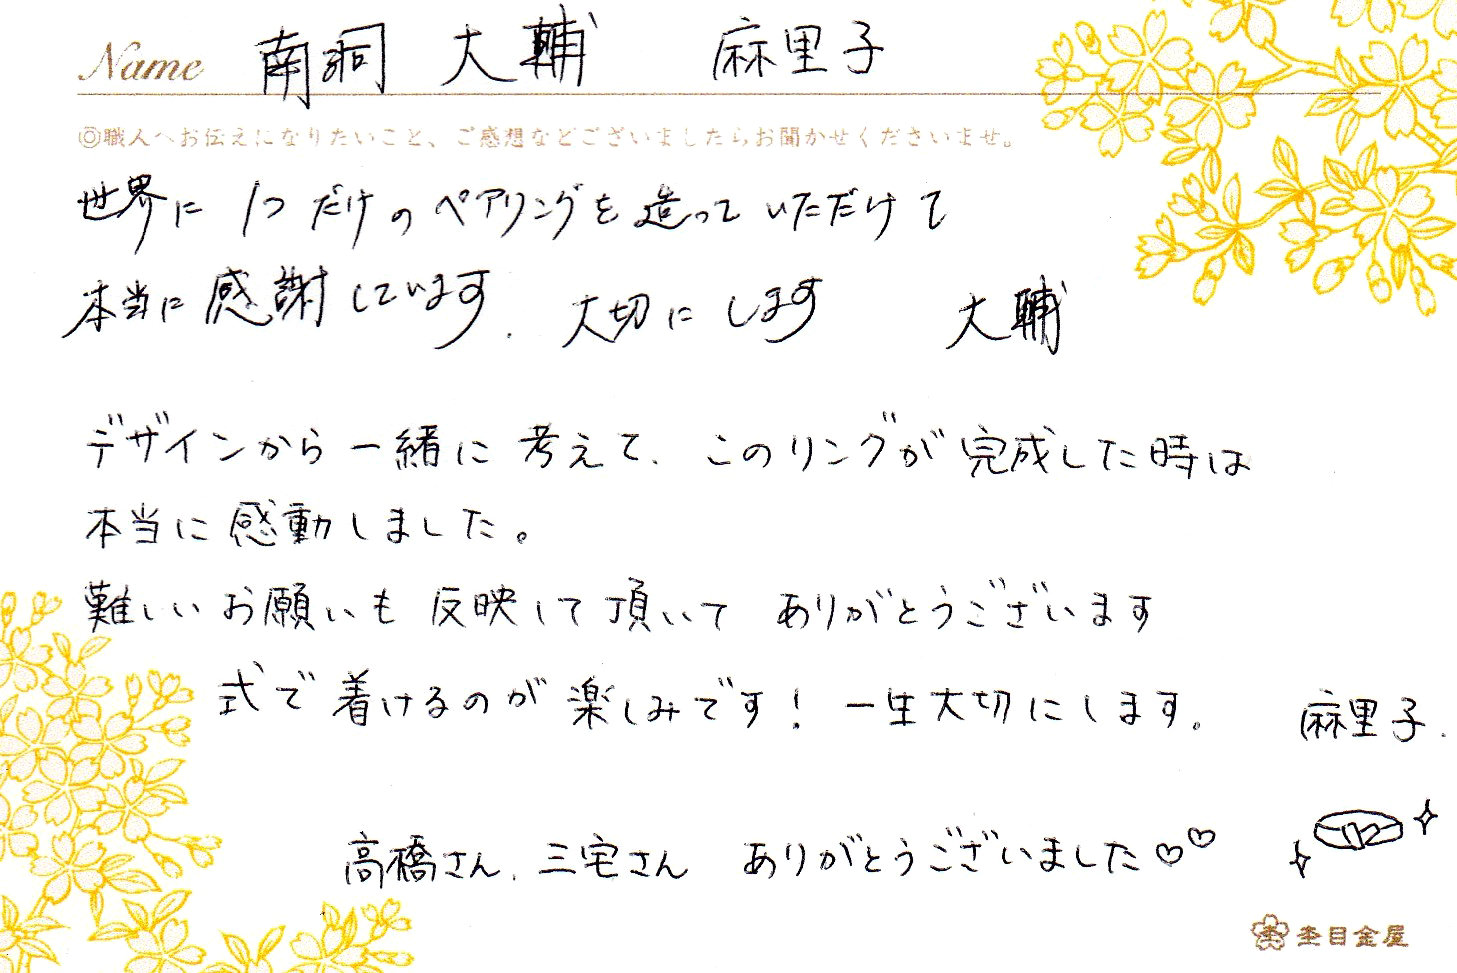 Name 南洞 大輔 麻里子
◎職人へお伝えになりたいこと、ご感想などございましたらお聞かせくださいませ。
世界に 1つだけの ペアリングを 造って いただけて
本当に 感謝しています. 大切に します 大輔
デザインから 一緒に 考えて、このリングが 完成した時は
本当に 感動しました。
難しい お願いも 反映して 頂いて ありがとうございます
式で 着けるのが 楽しみです! 一生大切にします。 麻里子.
高橋さん、三宅さん ありがとうございました♡♡
杢目金屋